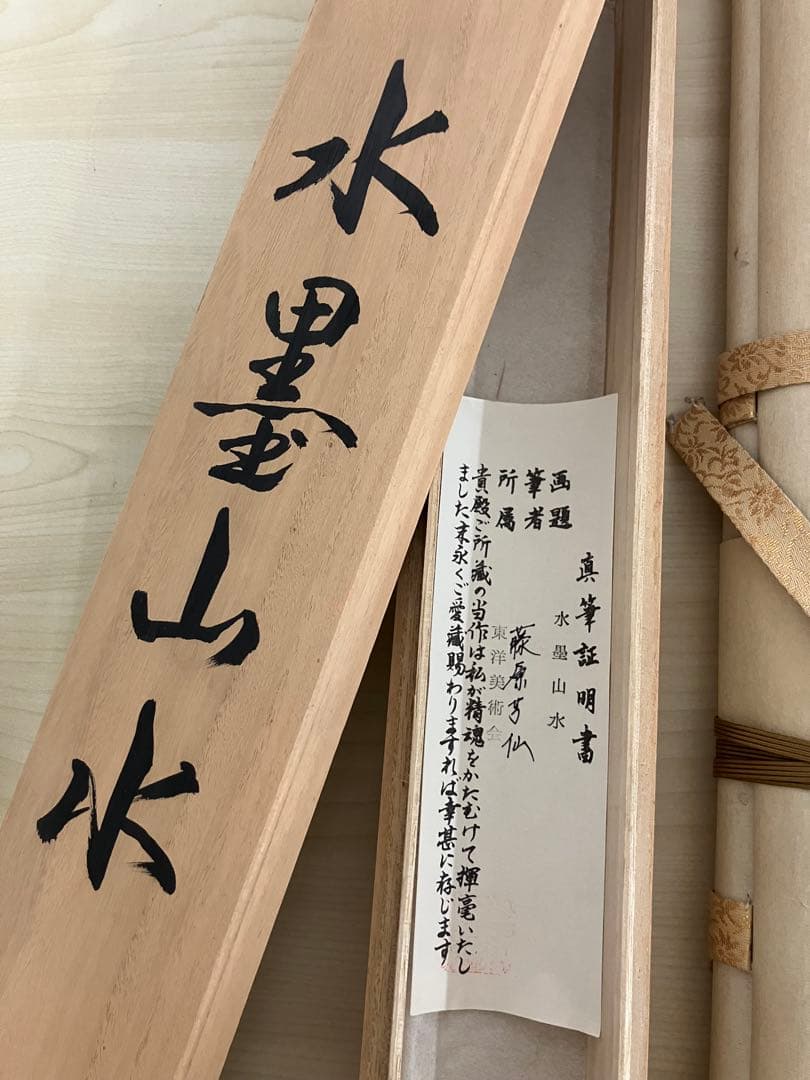 水墨山水
真筆証明書
画題 水墨山水
筆者 藤原芳仙
所属 東洋美術会
貴殿ご所蔵の当作は私が精魂をかたむけて揮毫いたし
ました末永くご愛蔵賜わりますれば幸甚に存じます